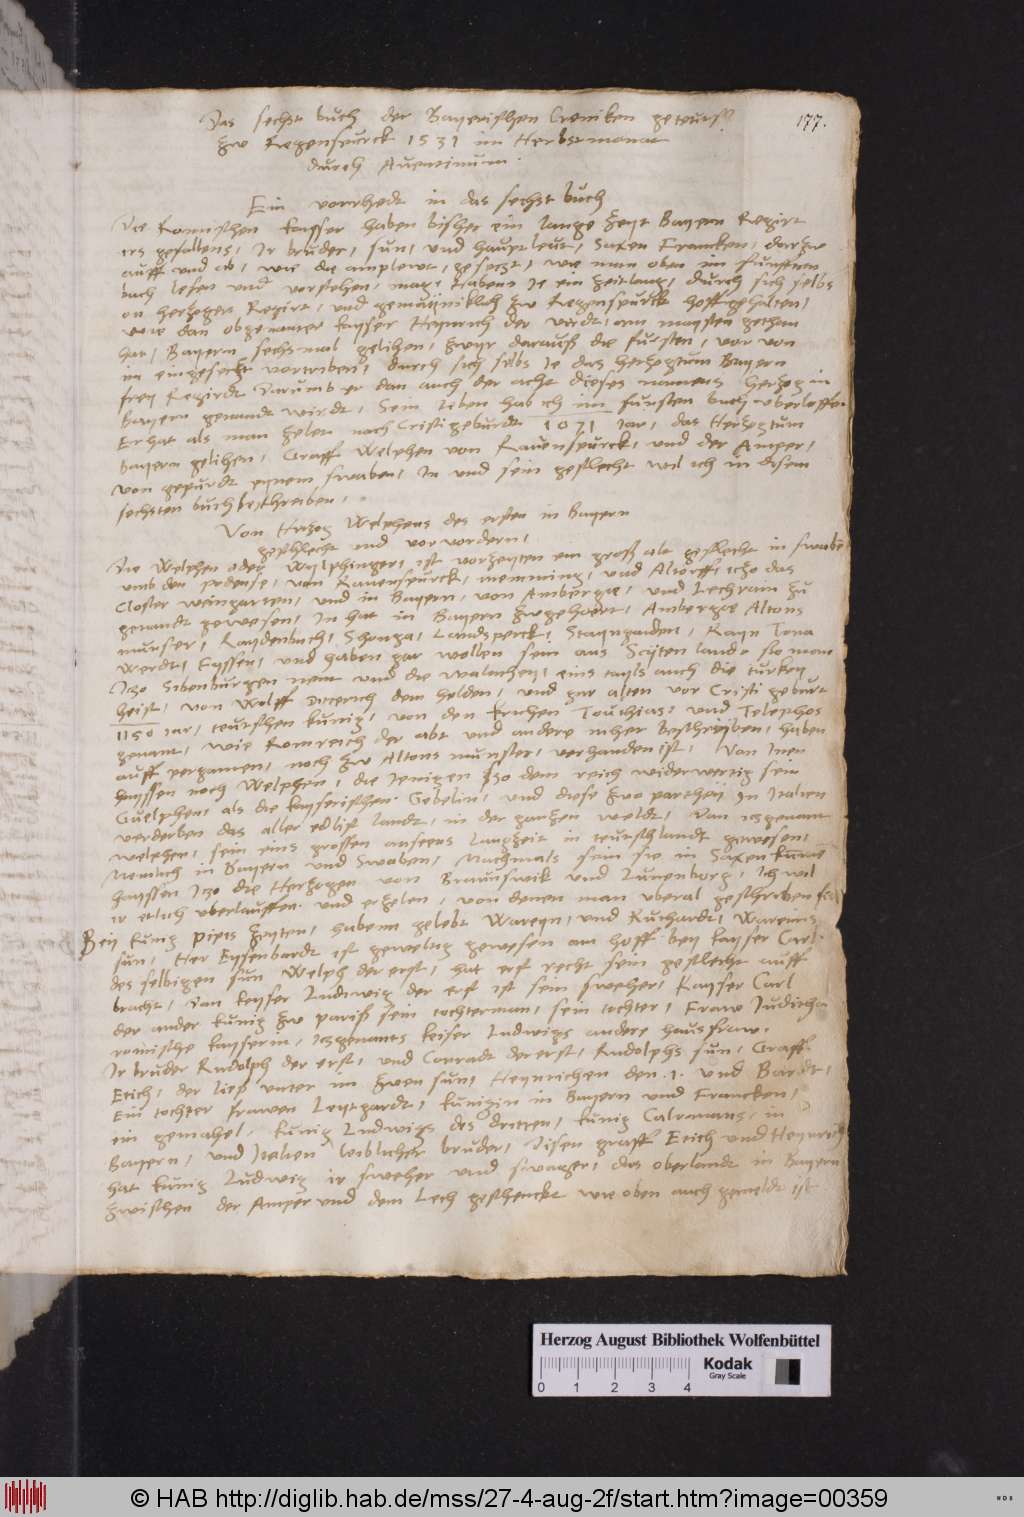 177.
Das sechst buch der Bayerischen Croniken geteutst
zw Regenspurck 1531 im Herbstmonat
durch Auentinum.
Ein vorrhedt in das sechst buch
Die Romischen kaysser haben bisher ein lange zeyt Bayern Regirt
irs gefallens, Ir bruder, sun, und hauptleut, Saxen Francken, darzw
auff und ab, wie die amplewt, gesetzt, wie man oben im funfften
buch lesen und verstehen, mag, habens Ie ein zeitlang, durch sich selbs
on herzogen Regirt, und gemayniklich zw Regenspurck hoff gehalten,
wie dan obgenanter kayser Heynrich der virdt, am maysten gethan
hat, Bayern sechsmal gelihen, zwyr darauß die fursten, vor von
im eingesetzt vertriben, durch sich selbs Ie das herzogtum Bayern
frey Regirdt Darumb er dan auch der acht dieses namens herzog in
Bayern genandt wirdt, Sein leben hab ich im funften buch uberloffen
Er hat als man zelet nach Cristi geburdt 1071 iar, das Herzogtum
Bayern gelihen, Graff Welphen von Rauenspurck, und der Amper,
von gepurdt eynem swaben, In und sein geslecht wil ich in disem
sechsten buch beschreiben,
Von Herzog Welphens des ersten in Bayern
geschlecht und vorvordern,
Die Welphen oder Wylphinger, ist vorzeyten ein groß alt geslecht in swaben
umb den podensee, von Rauenspurck, memming, und Altorff, itzo das
Closter weingarten, und in Bayern, von Ambergaw, und Lechrain zu
genandt gewesen, In hat in Bayern zwgehoert, Ambergaw Altons
munster, Raydenbuch, Schonga, Landsperck, Stayngaden, Rayn Tona
werdt, Fyssen, und haben gar wollen sein aus Scyten landt so man
Itzo Sibenburgen nent und die walachey, eins tayls auch die turkey
heist, von Wolff Ditterich dem helden, und gar alten vor Cristi geburt
1150 iar, teutschen kunig, von den krichen Touthias, und Telephos
genant, wie Romreich der abt und andere mher beschreiben, haben
auff pergamen, noch zw Altons munster, verhanden ist, Von Inen
hayssen noch Welphen, die Ienigen so dem reich widerwertig sein
Guelphen, als die kayserischen Gebelin, und diese zwo partheij In Italien
verderben das aller edlist landt, in der gantzen weldt, Dan itzgenant
welphen, sein eins grossen ansechens langzeit in teutschlandt gewesen,
Nemlich in Bayern und Swaben, Nachmals sein sie in Saxen kumen
hayssen Itzo die Herzogen von Braunswik und Lunenburg, Ich wil
ir etlich uberlauffen und erzelen, von denen man uberal geschriben
Beij kunig Pipis zeyten, habenn gelebt Wareyn, und Ruchardt, Wareins
sun, Her Eysenbardt ist geweltig gewesen am hoff bey kayser Carl
des selbigen sun Welph der erst, hat erst recht sein geslecht auff
bracht, Dan keyser Ludwig der erst ist sein sweher, Kayser Carl
der ander kunig zw pariß sein tochterman, sein tochter, Fraw Juditha
romische kayserin, itzgenants keiser Ludwigs andere hausfraw,
Ir bruder Rudolph der erst, und Conradt der erst, Rudolphs sun, Graff
Etich, der ließ unter im zwen sun, Heynrichen den .1. und Bardt,
Ein tochter frawen Leytgardt, kunigin in Bayern und Francken,
ein gemahel, kunig Ludwigs des dritten, kunig Calomans, in
Bayern, und Italien leiblicher bruder, Disen graff Etich und Heynrich
hat kunig Ludwig ir sweher und swager, das oberlandt in Bayern
zwischen der Amper und dem Lech geschenckt wie oben auch gemeldt ist
Herzog August Bibliothek Wolfenbüttel
0 1 2 3 4
Kodak
Gray Scale
© HAB http://diglib.hab.de/mss/27-4-aug-2f/start.htm?image=00359